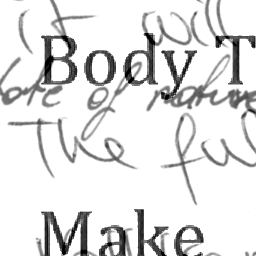 it will
Body T
of nature
The ful
Make